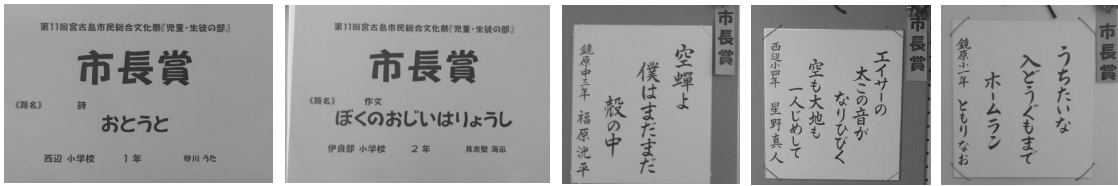 第11回宮古島市民総合文化祭『児童・生徒の部』
市長賞
《題名》 詩
おとうと
西辺 小学校 1年 砂川 うた
第11回宮古島市民総合文化祭『児童・生徒の部』
市長賞
《題名》 作文
ぼくのおじいはりょうし
伊良部 小学校 2年 具志堅 海凪
市長賞
空蟬よ
僕はまだまだ
殻の中
鏡原中三年 福原滉平
市長賞
エイサーの
太この音が
なりひびく
空も大地も
一人じめして
西辺小四年 星野真人
市長賞
うちたいな
入どうぐもまで
ホームラン
鏡原小一年 ともりなお